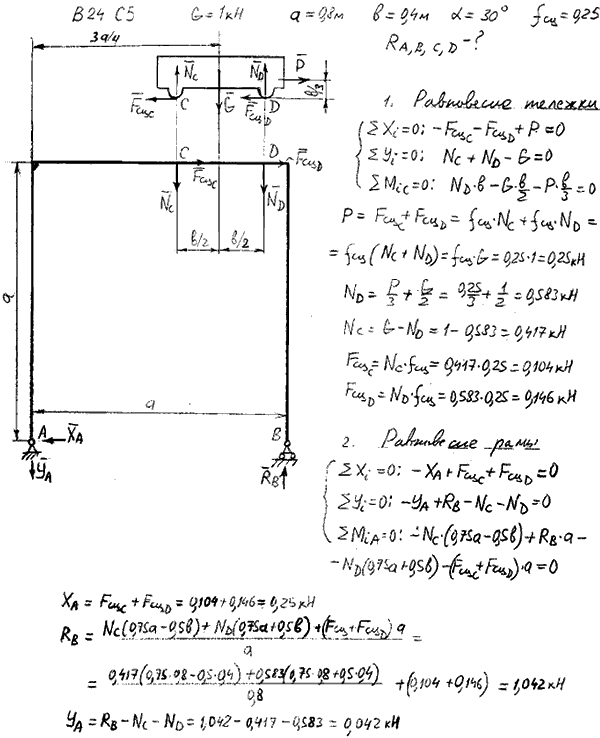 В24 С5 G=1кН a=0,8м в=0,4м α=30° fсц=0,25
RA,B,C,D-?
3a/4
N̄C N̄D P̄
F̄сцC C Ḡ F̄сцD D в/3
C D F̄сцD
F̄сцC
N̄C N̄D
в/2 в/2
a
a
A X̄A B
ȲA R̄B
1. Равновесие тележки
ΣXi=0: -FсцC-FсцD+P=0
ΣYi=0: NC+ND-G=0
ΣMiC=0: ND·в-G·в/2-P·в/3=0
P=FсцC+FсцD=fсц·NC+fсц·ND=
=fсц(NC+ND)=fсц·G=0,25·1=0,25кН
ND=P/3+G/2=0,25/3+1/2=0,583кН
NC=G-ND=1-0,583=0,417кН
FсцC=NC·fсц=0,417·0,25=0,104кН
FсцD=ND·fсц=0,583·0,25=0,146кН
2. Равновесие рамы
ΣXi=0: -XA+FсцC+FсцD=0
ΣYi=0: -YA+RB-NC-ND=0
ΣMiA=0: -NC·(0,75a-0,5в)+RB·a-
-ND(0,75a+0,5в)-(FсцC+FсцD)·a=0
XA=FсцC+FсцD=0,104+0,146=0,25кН
RB=(NC(0,75a-0,5в)+ND(0,75a+0,5в)+(FсцC+FсцD)a)/a=
=(0,417(0,75·0,8-0,5·0,4)+0,583(0,75·0,8+0,5·0,4))/0,8+(0,104+0,146)=1,042кН
YA=RB-NC-ND=1,042-0,417-0,583=0,042кН